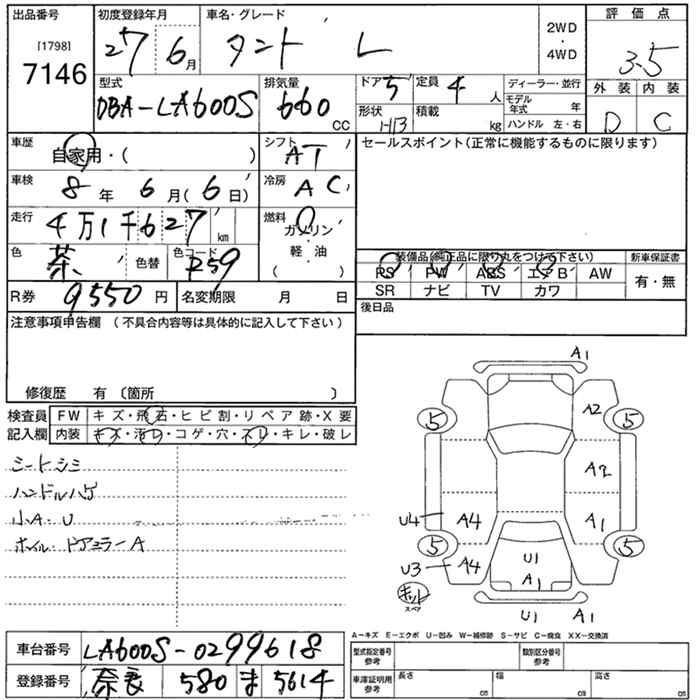 出品番号
[1798]
7146
初度登録年月
27 6月
車名・グレード
タント L
2WD
・
4WD
評価点
3.5
外装 内装
D C
型式
DBA-LA600S
排気量
660
CC
ドア 5
形状
定員 4 人
積載 kg
ディーラー・並行
モデル年式 年
ハンドル 左・右
車歴
自家用・( )
シフト
AT
セールスポイント(正常に機能するものに限ります)
車検
8年 6月(6日)
冷房
AC
走行
4万1千627km
燃料
ガソリン
軽・油
( )
色
茶
色替
色コード
R59
装備品(純正品に限り丸をつけて下さい)
新車保証書
PS PW ABS エアB AW
有・無
SR ナビ TV カワ
R券
9550円
名変期限 月 日
後日品
注意事項申告欄 (不具合内容等は具体的に記入して下さい)
修復歴 有 〔箇所 〕
検査員
記入欄
FW キズ・飛石・ヒビ割・リペア跡・X要
内装 キズ・汚レ・コゲ・穴・スレ・キレ・破レ
シートシミ
ハンドルハゲ
小A・U
ホイル・ドアミラーA
A1
A2
5
5
A2
U4
A4
A1
5
5
U3
A4
U1
A1
キット
スペア
U1
A1
A-キズ E-エクボ U-凹み W-補修跡 S-サビ C-腐食 XX-交換済
車台番号
LA600S-0299618
登録番号
奈良 580 ま 5614
型式指定番号
参考
類別区分番号
参考
車庫証明用
参考
長さ cm
幅 cm
高さ cm